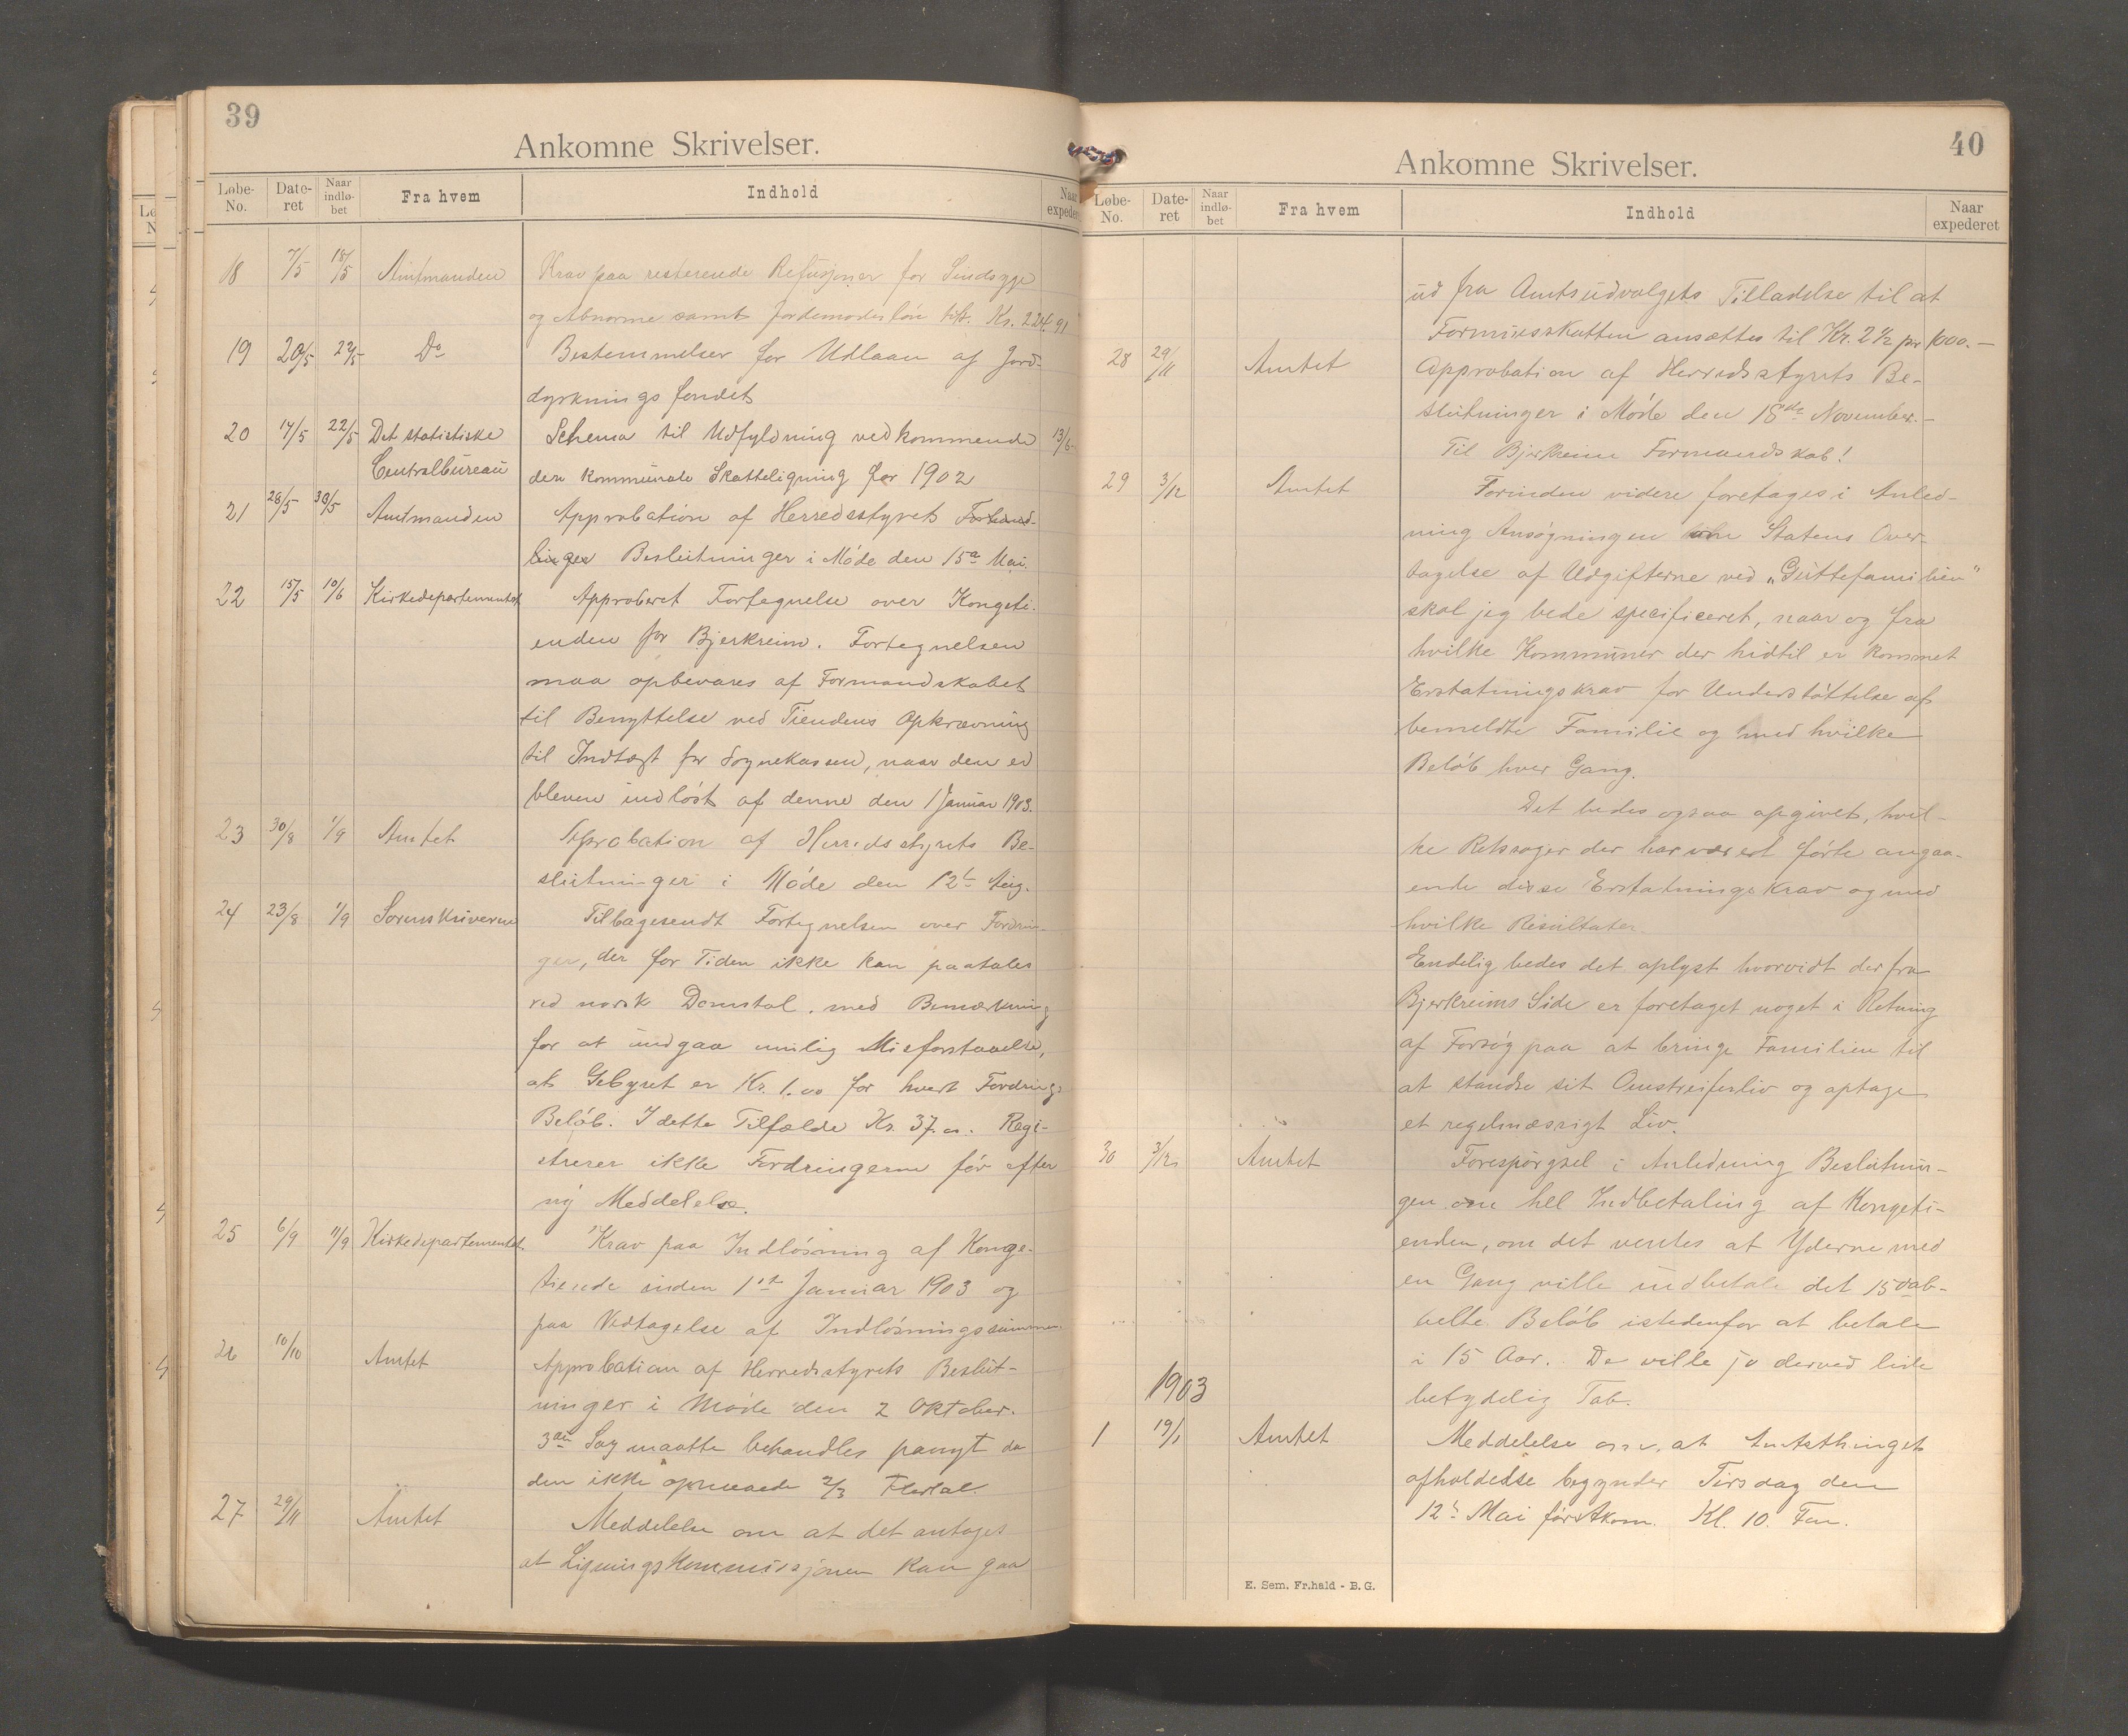 39
Ankomne Skrivelser.
Løbe-No. Date-ret Naar indlø-bet Fra hvem Indhold Naar expederet
18 7/5 18/5 Amtmanden Krav paa resterende Refusjoner for Sindsyge
og Abnorme samt Jordemoderløn tilst. Kr. 224.91
19 20/5 22/5 Do Bestemmelser for Udlaan af Jord-
dyrknings fondet
20 14/5 22/5 Det statistiske Schema til Udfyldning vedkommende 13/6
Centralbureau den kommunale Skatteligning for 1902
21 28/5 30/5 Amtmanden Approbation af Herredsstyrets Forhand-
linger Beslutninger i Møde den 15de Mai.
22 15/5 10/6 Kirkedepartementet Approberet Fortegnelse over Kongeti-
enden for Bjerkreim. Fortegnelsen
maa opbevares af Formandskabet
til Benyttelse ved Tiendens Opkrævning
til Indtægt for Sognekassen, naar den er
bleven indløst af denne den 1 Januar 1903.
23 30/8 1/9 Amtet Approbation af Herredsstyrets Be-
slutninger i Møde den 12te Aug.
24 23/8 1/9 Sorenskriveren Tilbagesendt Fortegnelsen over Fordrin-
ger, der for Tiden ikke kan paatales
ved norsk Domstol. med Bemærkning
for at undgaa mulig Misforstaaelse,
at Gebyret er Kr. 1.00 for hvert Fordrings
Beløb. I dette Tilfælde Kr. 37.00. Regi-
strerer ikke Fordringerne før efter
ny Meddelelse.
25 6/9 11/9 Kirkedepartementet Krav paa Indløsning af Konge-
tiende inden 1ste Januar 1903 og
paa Vedtagelse af Indløsningssummen.
26 10/10 Amtet Approbation af Herredsstyrets Beslut-
ninger i Møde den 2 Oktober.
3die Sag maatte behandles panyt da
den ikke opnaaede 2/3 Flertal.
27 29/11 Amtet Meddelelse om at det antages
at Ligningskommissjonen kan gaa
40
Ankomne Skrivelser.
Løbe-No. Date-ret Naar indlø-bet Fra hvem Indhold Naar expederet
ud fra Amtsudvalgets Tilladelse til at
Formuesskatten ansættes til Kr. 2 1/2 pr 1000.—
28 29/11 Amtet Approbation af Herredsstyrets Be-
slutninger i Møde den 18de November.—
Til Bjerkreim Formandskab!
29 3/12 Amtet Forinden videre foretages i Anled-
ning Ansøgningen om Statens Over-
tagelse af Udgifterne ved „Guttefamilien”
skal jeg bede specificeret, naar og fra
hvilke Kommuner der hidtil er kommet
Erstatningskrav for Understøttelse af
bemeldte Familie og med hvilke
Beløb hver Gang.
Det bedes ogsaa opgivet, hvil-
ke Retssager der har været førte angaa-
ende disse Erstatningskrav og med
hvilke Resultater.
Endelig bedes det oplyst hvorvidt der fra
Bjerkreims Side er foretaget noget i Retning
af Forsøg paa at bringe Familien til
at standse sit Omstreiferliv og optage
et regelmæssigt Liv.
30 3/12 Amtet Forespørgsel i Anledning Beslutnin-
gen om hel Indbetaling af Kongeti-
enden, om det ventes at Yderne med
en Gang ville indbetale det 15 dob-
belte Beløb istedenfor at betale
i 15 Aar. De ville jo derved lide
betydelig Tab.
1903
1 19/1 Amtet Meddelelse om, at Amtsthingets
afholdelse begynder Tirsdag den
12te Mai førstkom. Kl. 10. Fm.
E. Sem. Fr.hald - B. G.